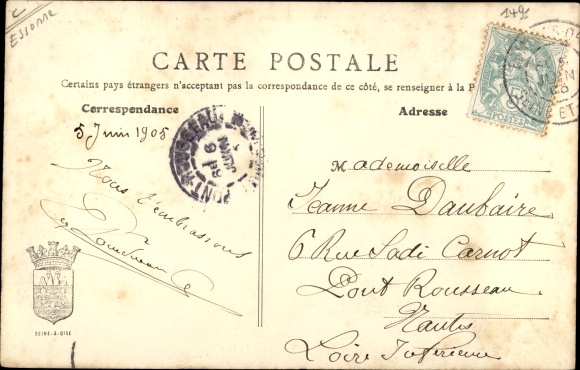 C
ESSONNE
1491
CARTE POSTALE
Certains pays étrangers n'acceptant pas la correspondance de ce côté, se renseigner à la P
Correspondance
Adresse
5 Juin 1905
PONT-ROUSSEAU
6
JUIN
POSTES
Mademoiselle
Jeanne Daubaire
6 Rue Sadi Carnot
Pont Rousseau
Nantes
Loire Inférieure
Nous t'embrassons
SEINE-&-OISE